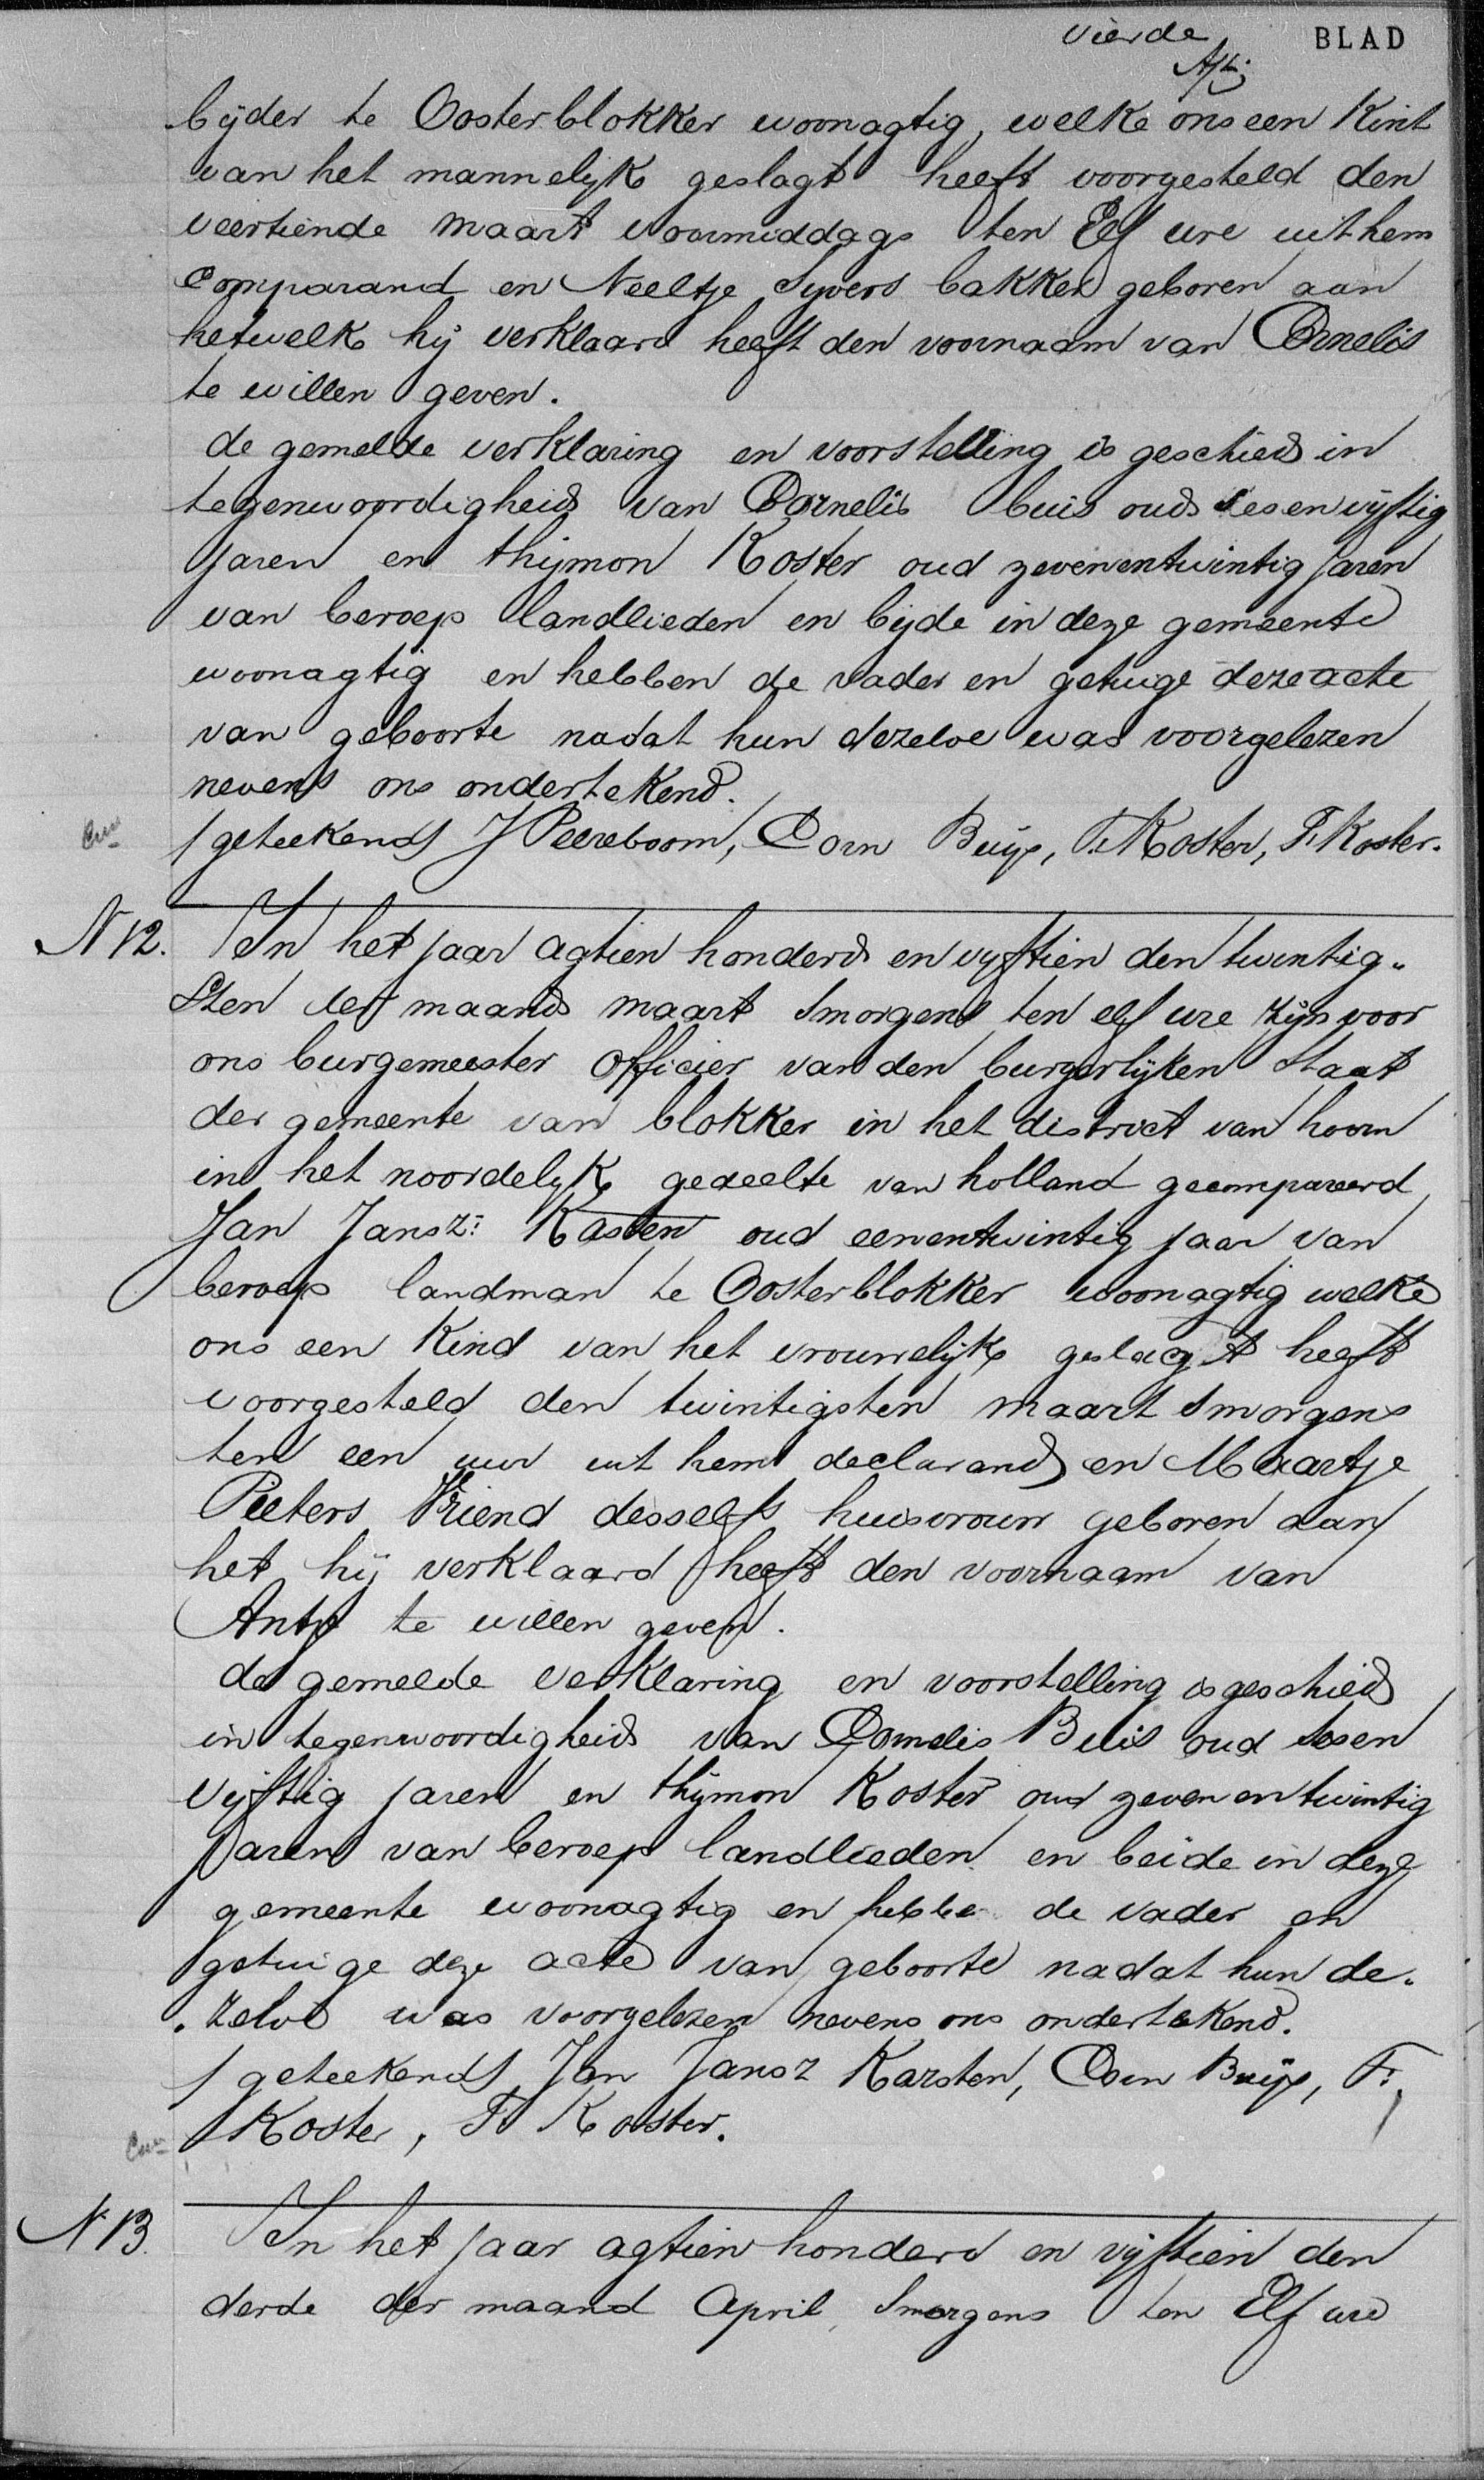 vierde BLAD
bijder te Oosterblokker woonagtig, welke ons een Kint
van het mannelijk geslagt heeft voorgesteld den
veertiende maart voormiddags ten Elf ure uit hem
Comparand en Neeltje Sijvers bakker geboren aan
hetwelk hij verklaard heeft den voornaam van Cornelis
te willen geven.
de gemelde verklaring en voorstelling is geschied in
tegenwoordigheid van Cornelis buis oud sesenvijftig
Jaren en thijmon Koster oud zevenentwintig jaren
van beroep landlieden en bijde in deze gemeente
woonagtig en hebben de vader en getuige deze acte
van geboorte nadat hun dezelve was voorgelezen
nevens ons ondertekend.
/geteekend/ J Peereboom, Corn Buijs, T. Koster, F. Koster.
N 12. In het jaar agtien honderd en vyftien den twintig„
Sten der maand maart Smorgens ten elf ure zijn voor
ons burgemeester officier van den burgerlijken Staat
der gemeente van blokker in het district van hoorn
in het noordelyk gedeelte van holland gecompareerd
Jan Jansz: Kasten oud eenentwintig jaar van
beroep landman te Oosterblokker woonagtig welke
ons een Kind van het vrouwelijk geslagt heeft
voorgesteld den twintigsten maart Smorgens
ten een uur uit hem declarand en Maartje
Pieters Vriend desselfs huisvrouw geboren aan
het hij verklaard heeft den voornaam van
Antje te willen geven.
de gemelde verklaring en voorstelling is geschied
in tegenwoordigheid van Cornelis Buis oud sesen
vijftig jaren en thijmon Koster oud zevenentwintig
Jaren van beroep landlieden en beide in deze
gemeente woonagtig en hebbe de vader en
getuige deze acte van geboorte nadat hun de„
„zelve was voorgelezen nevens ons ondertekend.
/geteekend/ Jan Jansz Karsten, Corn Buijs, T.
Koster, F Koster.
N 13. In het jaar agtien honderd en vijftien den
derde der maand April Smorgens ten Elf ure